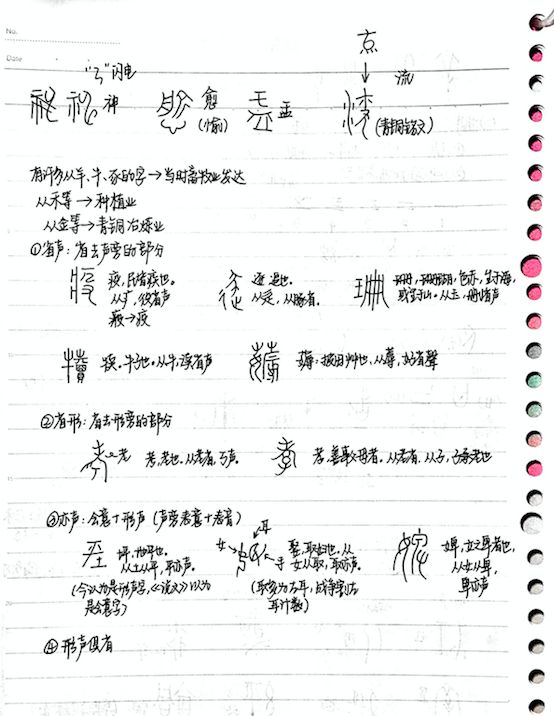 No.
Date
"ㄋ"闪电
神
愈
(愉)
盂
㐬
流
(青铜铭文)
有许多从羊、牛、豕的字→当时畜牧业发达
从禾等→种植业
从金等→青铜冶炼业
①省声：省去声旁的部分
疫，民皆疾也。
从疒，役省声
逐 追也。
从辵，从豚省。
珊，色赤，生于海，
或生于山。从玉，删省声
犊。牛子也。从牛，渎省声
薅：拔田艹也，从蓐，好省声
②省形：省去形旁的部分
老
考，老也。从老省，丂声。
孝，善事父母者。从老省，从子，子承老也
③亦声：会意+形声（声旁表意+表音）
坪，地平也。
从土从平，平亦声。
(今认为是形声字，《说文》以为
是会意字)
女→
耳
娶，取妇也。从
女从取，取亦声。
(取实为右耳，战争割左
耳计数)
从女从卑，
卑亦声
④形声俱有